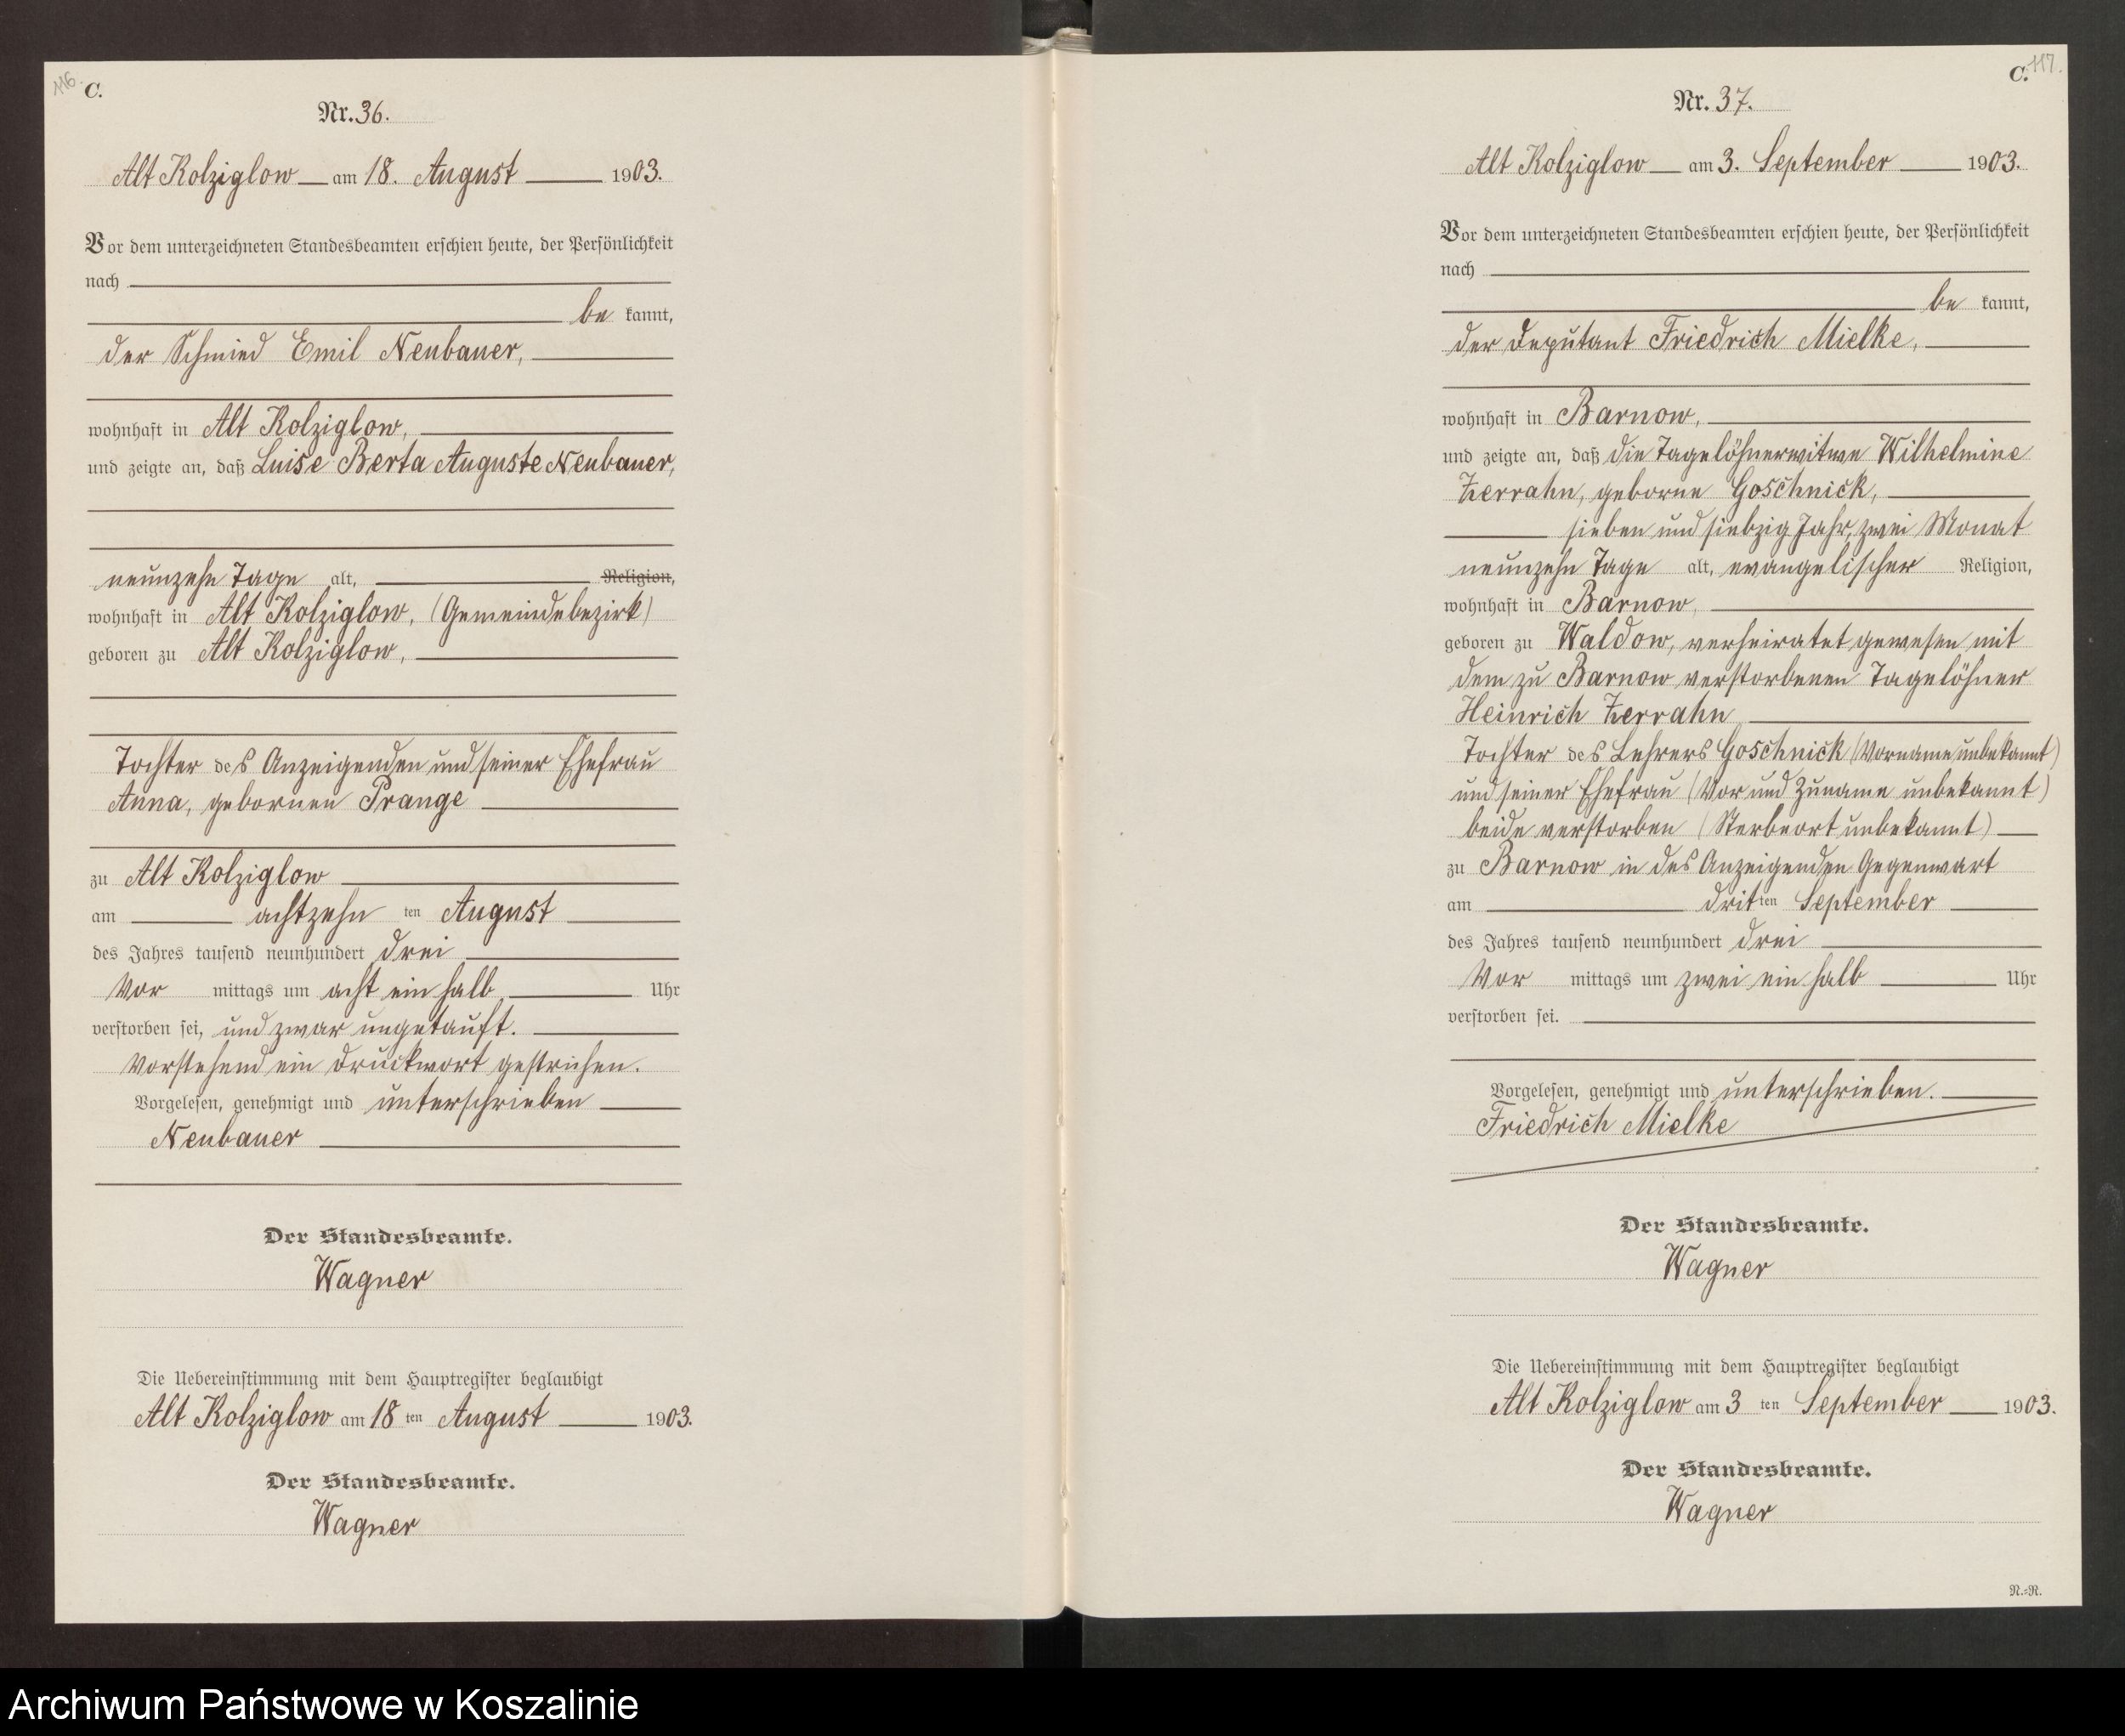 116.
C.
Nr. 36.
Alt Kolziglow am 18. August 1903.
Vor dem unterzeichneten Standesbeamten erschien heute, der Persönlichkeit
nach
be kannt,
der Schmied Emil Neubauer,
wohnhaft in Alt Kolziglow,
und zeigte an, daß Luise Berta Auguste Neubauer,
neunzehn Tage alt, Religion,
wohnhaft in Alt Kolziglow, (Gemeindebezirk)
geboren zu Alt Kolziglow,
Tochter des Anzeigenden und seiner Ehefrau
Anna, gebornen Prange
zu Alt Kolziglow
am achtzehn ten August
des Jahres tausend neunhundert drei
Vor mittags um acht ein halb Uhr
verstorben sei, und zwar ungetauft.
Vorstehend ein Druckwort gestrichen.
Vorgelesen, genehmigt und unterschrieben
Neubauer
Der Standesbeamte.
Wagner
Die Uebereinstimmung mit dem Hauptregister beglaubigt
Alt Kolziglow am 18 ten August 1903.
Der Standesbeamte.
Wagner
117.
C.
Nr. 37.
Alt Kolziglow am 3. September 1903.
Vor dem unterzeichneten Standesbeamten erschien heute, der Persönlichkeit
nach
be kannt,
der Deputant Friedrich Mielke,
wohnhaft in Barnow,
und zeigte an, daß die Tagelöhnerwitwe Wilhelmine
Zerrahn, geborne Goschnick,
sieben und siebzig Jahr, zwei Monat
neunzehn Tage alt, evangelischer Religion,
wohnhaft in Barnow,
geboren zu Waldow, verheiratet gewesen mit
dem zu Barnow verstorbenen Tagelöhner
Heinrich Zerrahn
Tochter des Lehrers Goschnick (Vorname unbekannt)
und seiner Ehefrau (Vor und Zuname unbekannt)
beide verstorben (Sterbeort unbekannt)
zu Barnow in des Anzeigenden Gegenwart
am drit ten September
des Jahres tausend neunhundert drei
Vor mittags um zwei ein halb Uhr
verstorben sei.
Vorgelesen, genehmigt und unterschrieben.
Friedrich Mielke
Der Standesbeamte.
Wagner
Die Uebereinstimmung mit dem Hauptregister beglaubigt
Alt Kolziglow am 3 ten September 1903.
Der Standesbeamte.
Wagner
N.=R.
Archiwum Państwowe w Koszalinie